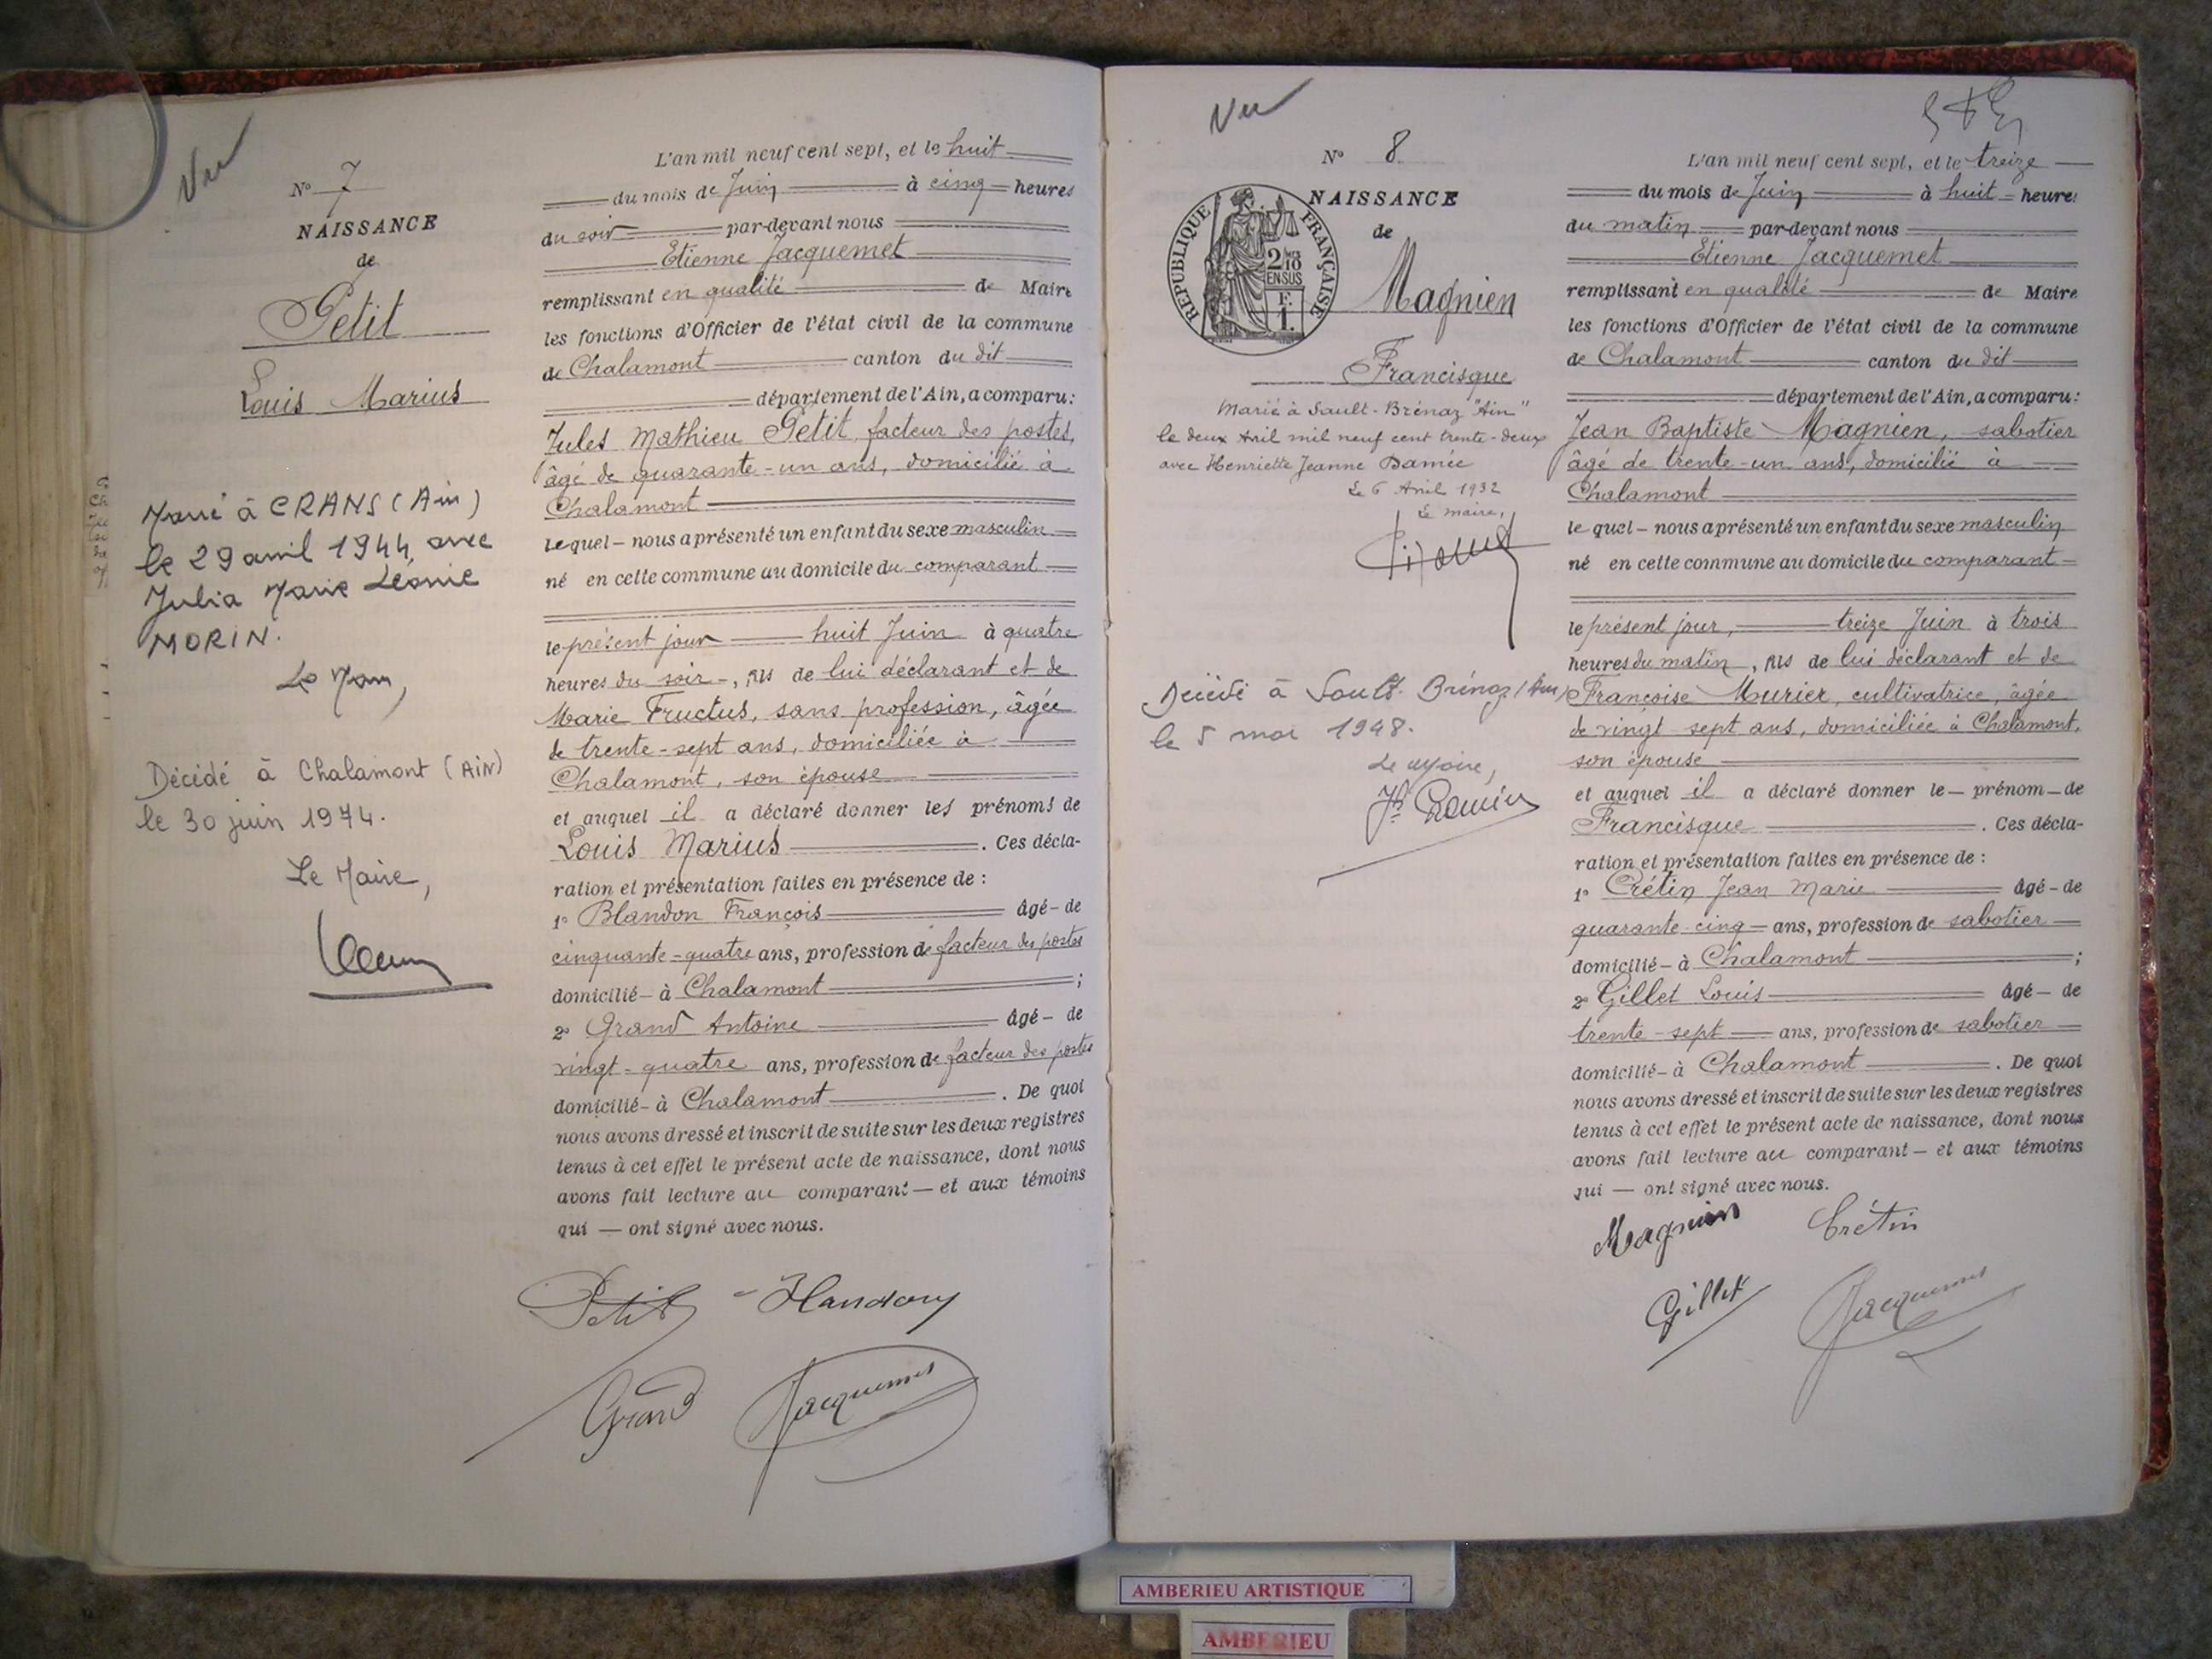 Vu
N° 7
NAISSANCE
de
Petit
Louis Marius
Marié à CRANS (Ain)
le 29 avril 1944 avec
Julia Marie Léonie
MORIN.
Le Maire,
Décédé à Chalamont (AIN)
le 30 juin 1974.
Le Maire,
L'an mil neuf cent sept, et le huit
du mois de Juin à cinq heures
du soir par-devant nous
Etienne Jacquemet
remplissant en qualité de Maire
les fonctions d'Officier de l'état civil de la commune
de Chalamont canton du dit
département de l'Ain, a comparu:
Jules Mathieu Petit, facteur des postes,
âgé de quarante-un ans, domicilié à
Chalamont
lequel – nous a présenté un enfant du sexe masculin
né en cette commune au domicile du comparant
le présent jour huit Juin à quatre
heures du soir -, fils de lui déclarant et de
Marie Fructus, sans profession, âgée
de trente-sept ans, domiciliée à
Chalamont, son épouse
et auquel il a déclaré donner les prénoms de
Louis Marius . Ces décla-
ration et présentation faites en présence de :
1° Blandon François âgé - de
cinquante-quatre ans, profession de facteur des postes
domicilié - à Chalamont ;
2° Grand Antoine âgé - de
vingt-quatre ans, profession de facteur des postes
domicilié - à Chalamont . De quoi
nous avons dressé et inscrit de suite sur les deux registres
tenus à cet effet le présent acte de naissance, dont nous
avons fait lecture au comparant — et aux témoins
qui — ont signé avec nous.
Petit Blandon
Grand Jacquemet
Vu
N° 8
NAISSANCE
de
REPUBLIQUE FRANÇAISE
2/10 EN SUS
F.
1.
Magnien
Francisque
Marié à Sault-Brénaz "Ain"
le deux Avril mil neuf cent trente-deux
avec Henriette Jeanne Damée
Le 6 Avril 1932
Le maire,
Décédé à Sault-Brénaz (Ain)
le 5 mai 1948.
Le Maire,
L'an mil neuf cent sept, et le treize
du mois de Juin à huit heures
du matin par-devant nous
Etienne Jacquemet
remplissant en qualité de Maire
les fonctions d'Officier de l'état civil de la commune
de Chalamont canton du dit
département de l'Ain, a comparu:
Jean Baptiste Magnien, sabotier
âgé de trente-un ans, domicilié à
Chalamont
lequel – nous a présenté un enfant du sexe masculin
né en cette commune au domicile du comparant
le présent jour, treize Juin à trois
heures du matin, fils de lui déclarant et de
Françoise Murier, cultivatrice, âgée
de vingt sept ans, domiciliée à Chalamont,
son épouse
et auquel il a déclaré donner le — prénom — de
Francisque . Ces décla-
ration et présentation faites en présence de :
1° Crétin Jean Marie âgé - de
quarante-cinq ans, profession de sabotier
domicilié - à Chalamont ;
2° Gillet Louis âgé — de
trente-sept ans, profession de sabotier
domicilié - à Chalamont . De quoi
nous avons dressé et inscrit de suite sur les deux registres
tenus à cet effet le présent acte de naissance, dont nous
avons fait lecture au comparant — et aux témoins
qui — ont signé avec nous.
Magnien Crétin
Gillet Jacquemet
AMBERIEU ARTISTIQUE
AMBERIEU